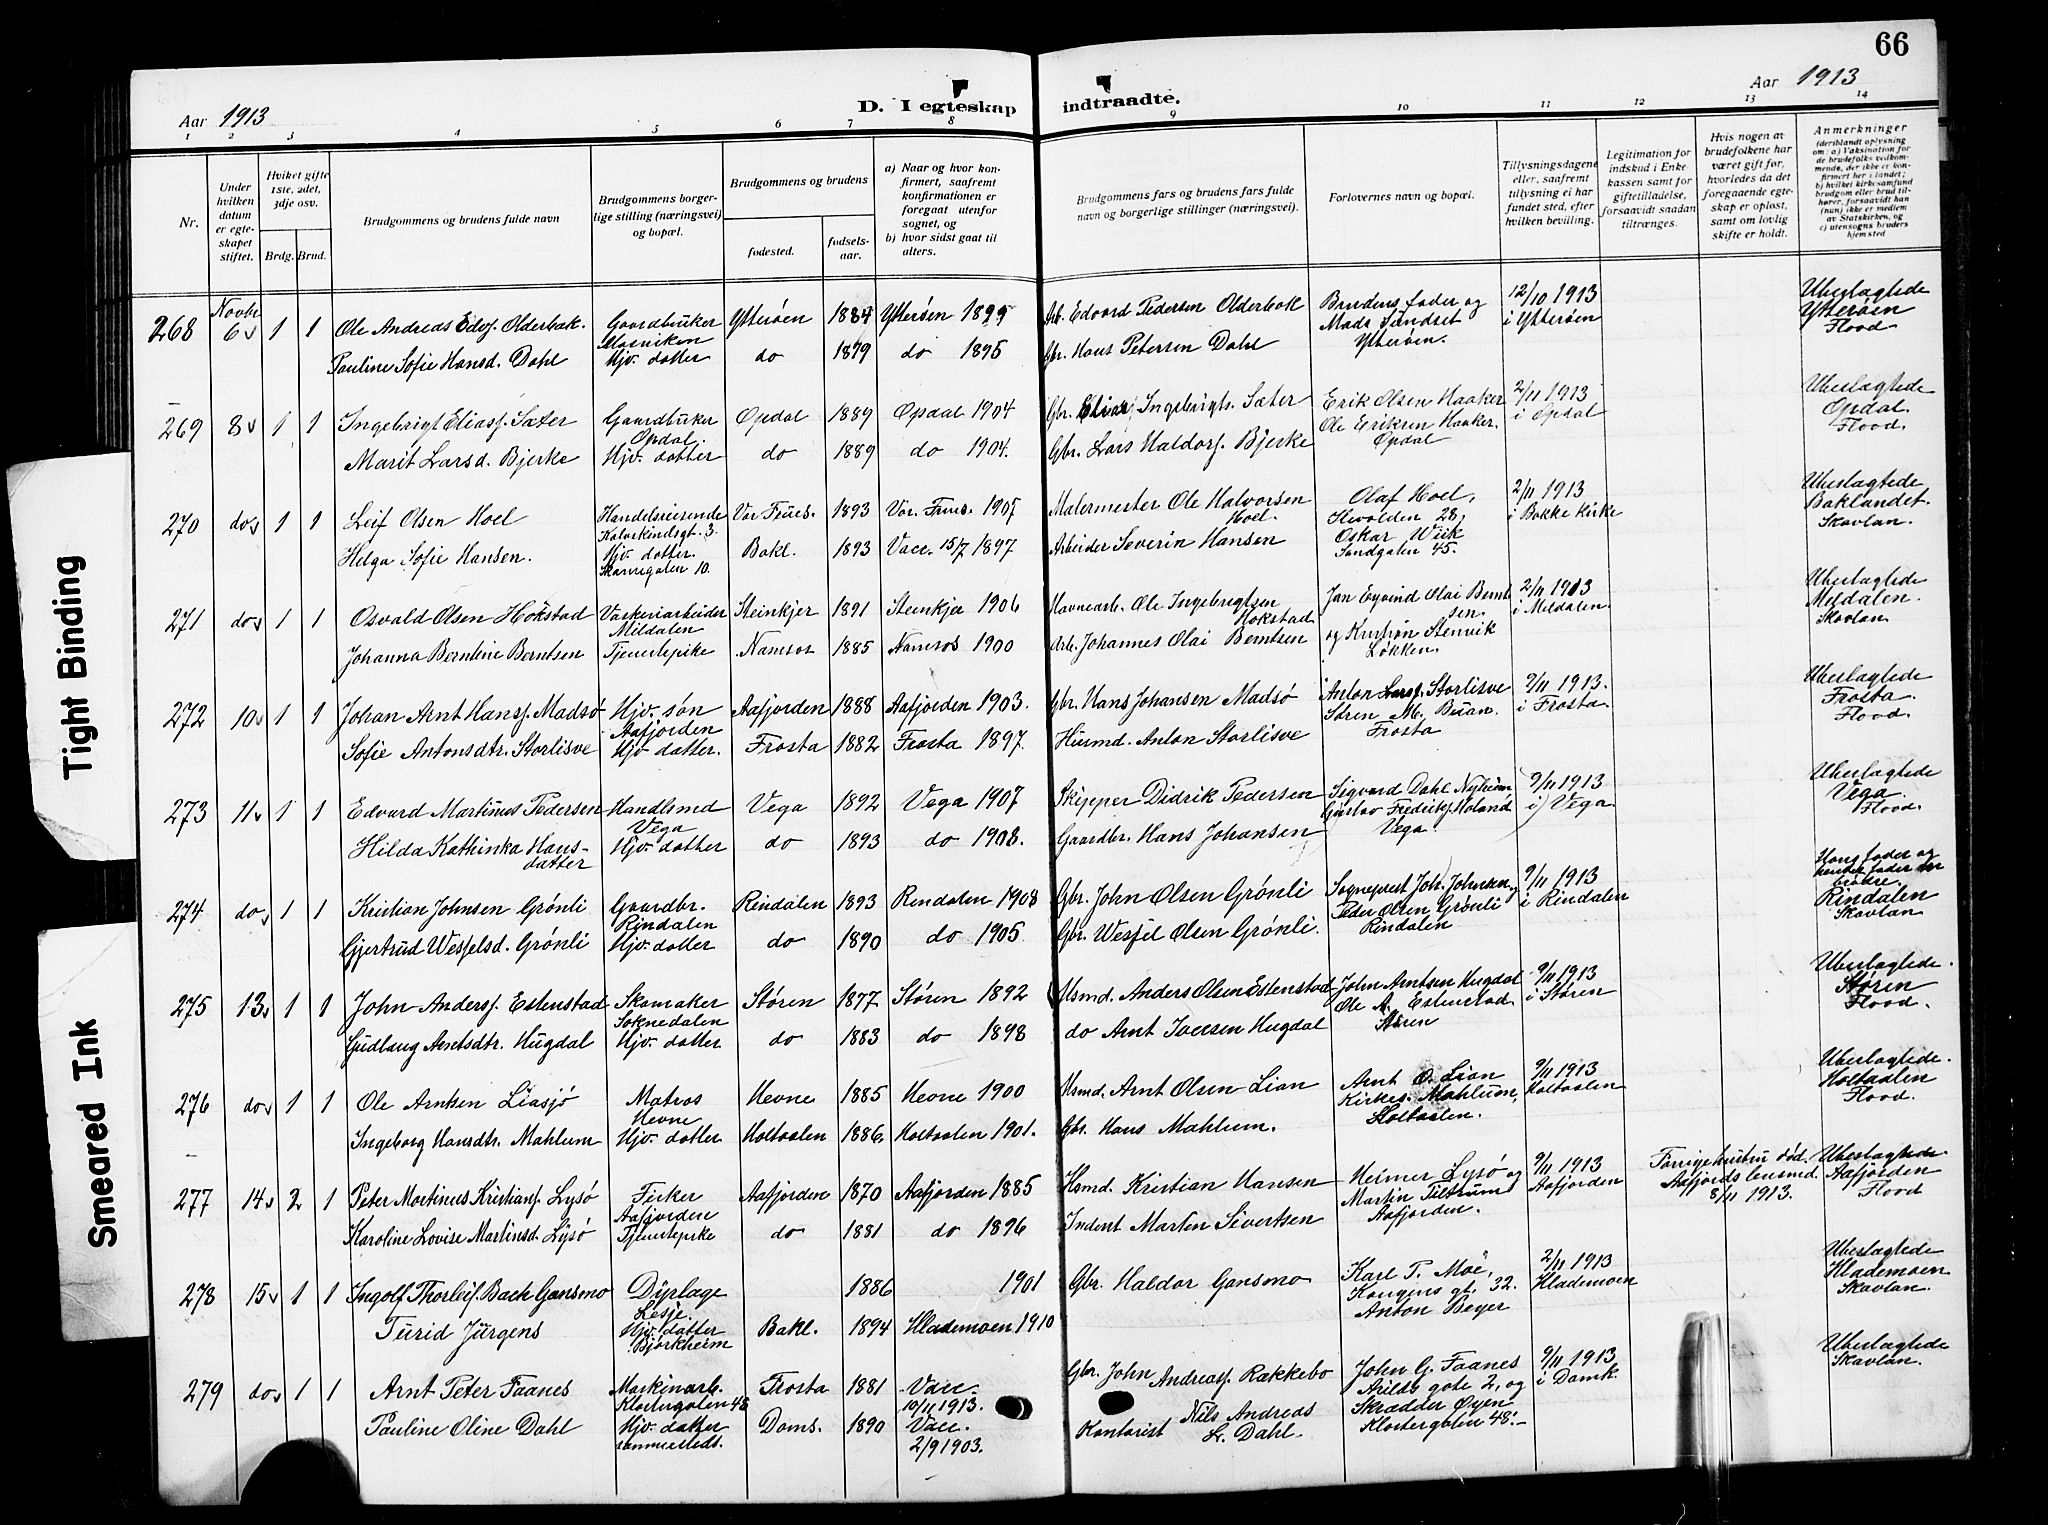 66
Aar 1913
D. I egteskap indtraadte.
Aar 1913
1 2 3 4 5 6 7 8 9 10 11 12 13 14
Nr.
Under hvilken datum er egteskapet stiftet.
Hviket gifte 1ste, 2det, 3dje osv.
Brdg. Brud.
Brudgommens og brudens fulde navn
Brudgommens borgerlige stilling (næringsvei) og bopæl.
Brudgommens og brudens
fødested.
fødselsaar.
a) Naar og hvor konfirmert, saafremt konfirmationen er foregaat utenfor sognet, og
b) hvor sidst gaat til alters.
Brudgommens fars og brudens fars fulde navn og borgerlige stillinger (næringsvei).
Forlovernes navn og bopæl.
Tillysningsdagene eller, saafremt tillysning ei har fundet sted, efter hvilken bevilling.
Legitimation for indskud i Enkekassen samt for giftetilladelse, forsaavidt saadan tiltrænges.
Hvis nogen at brudefolkene har været gift før, hvorledes da det foregaaende egteskap er opløst, samt om lovlig skifte er holdt.
Anmerkninger (deriblandt oplysning om: a) Vaksination for de brudefolks vedkommende, der ikke er konfirmert her i landet; b) hvilket kirkesamfund brudgom eller brud tilhører, forsaavidt han (hun) ikke er medlem av Statskirken, og c) utensogns bruders hjemsted
268 Novbr 6 1 1 Ole Andreas Edvs. Olderbak. Gaardbruker Mosviken Ytterøen 1884 Ytterøen 1899 Arb. Edvard Pedersen Olderbak Brudens fader og Mads Sundset Ytterøen. 12/10 1913 i Ytterøen Ubeslægtede Ytterøen Flood
Pauline Sofie Hansd. Dahl Hjv. datter do 1879 do 1895 Gbr. Hans Petersen Dahl
269 8 1 1 Ingebrigt Eliass. Sæter Gaardbruker Opdal Opdal 1889 Opdal 1904 Gbr. Elias Ingebrigts. Sæter Erik Olsen Haaker Ole Eriksen Haaker. Opdal 2/11 1913 i Opdal Ubeslægtede Opdal. Flood.
Marit Larsd. Bjerke Hjv. datter do 1889 do 1904. Gbr. Lars Haldors. Bjerke
270 do 1 1 Leif Olsen Hoel Handelsreisende Kalvskindsgt. 3. Vor Frues. 1893 Vor. Frues. 1907 Malermester Ole Halvorsen Hoel. Olaf Hoel, Ilevolden 28, Oskar Wiik Sandgaten 45. 2/11 1913 i Bakke Kirke Ubeslægtede Baklandet. Skavlan.
Helga Sofie Hansen. Hjv. datter. 10. Bakl. 1893 Vacc. 15/7 1897 Arbeider Severin Hansen
271 do 1 1 Osvald Olsen Hokstad Vaskeriarbeider Mildalen Steinkjer 1891 Steinkjer 1906 Havnearb. Ole Ingebrigtsen Hokstad Jan Eyvind Olai Berntsen. og Kristian Stenvik Løkken. 2/11 1913 i Meldalen. Ubeslægtede Meldalen. Skavlan.
Johanna Berntine Berntsen Tjenestepike Namsos 1885 Namsos 1900 Arb. Johannes Olai Berntsen
272 10 1 1 Johan Arnt Hans. Madsø Hjv. søn Aafjorden Aafjorden 1888 Aafjorden 1903. Gbr. Hans Johansen Madsø Anton Lars. Storlisve Søren M. Buan. Frosta 9/11 1913. i Frosta. Ubeslægtede Frosta. Flood.
Sofie Antonsdtr. Storlisve Hjv datter. Frosta 1882 Frosta 1897. Husmd. Anton Storlisve
273 11 1 1 Edvard Martinus Pedersen Handlsmd Vega Vega 1892 Vega 1907 Skipper Didrik Pedersen Sigvard Dahl Gustav Fredriks. Holand Vega. 9/11 1913 i Vega. Ubeslægtede Vega. Flood.
Hilda Kathinka Hansdatter Hjv. datter do 1893 do 1908. Gaardbr. Hans Johansen
274 do 1 1 Kristian Johnsen Grønli Gaardbr. Rindalen Rindalen 1893 Rindalen 1908 Gbr. John Olsen Grønli Sogneprest Joh. Johnsen og Peder Olsen Grønli Rindalen 9/11 1913 i Rindalen Hans fader og hendes fader er brødre. Rindalen Skavlan
Gjertrud Wessels. Grønli Hjv. datter do 1890 do 1905. Gbr. Wessel Olsen Grønli.
275 13 1 1 John Anders. Estenstad Skomaker Soknedalen Støren 1877 Støren 1892 Husmd. Anders Olsen Estenstad John Arntsen Hugdal Ole A. Estenstad. Støren 9/11 1913 i Støren Ubeslægtede. Støren Flood.
Gudlaug Arntsdtr. Hugdal Hjv. datter do 1883 do 1898 do Arnt Iversen Hugdal
276 do 1 1 Ole Arntsen Liasjø Matros Hevne Hevne 1885 Hevne 1900 Husmd. Arnt Olsen Lian Arnt O. Lian Kirkes. Mahlum, Holtaalen. 9/11 1913 Holtaalen Ubeslægtede. Holtaalen Flood.
Ingeborg Hansdtr. Mahlum Hjv. datter Holtaalen 1886. Holtaalen 1901. Gbr. Hans Mahlum.
277 14 2 1 Peter Martinus Kristians. Lysø Fisker Aafjorden Aafjorden 1870 Aafjorden 1885 Hsmd. Kristian Hansen Heimer Lysø og Martin Tiltrum Aafjorden. 9/11 1913 Aafjorden Forrige hustru død. Aafjords lensmd. 8/11 1913. Ubeslægtede. Aafjorden Flood
Karoline Lovise Martinsd. Lysø Tjenestepike do 1881 do 1896 Inderst Martin Sivertsen
278 15 1 1 Ingolf Thorleif. Bach Gansmo Dyrlæge Lesje 1886 1901 Gbr. Haldor Gansmo Karl T. Moe, Kongens gt. 32. Anton Beyer 2/11 1913 Hlademoen Ubeslægtede Hlademoen Skavlan.
Turid Jürgens Hjv. datter Bjørkheim Bakl. 1894 Hlademoen 1910
279 do 1 1 Arnt Peter Faanes Maskinarb. Klostergaten 48 Frosta 1881 Vacc. 10/11 1913. Gbr. John Andreass. Rokkebo John G. Faanes Arilds gate 2, og Skrædder Øyen Klostergaten 48. 9/11 1913 i Domk. Ubeslægtede Skavlan.
Pauline Oline Dahl Hjv. datter sammesteds. Doms. 1890 Vacc. 2/9 1903. Kontorist Nils Andreas L. Dahl.
Tight Binding
Smeared Ink